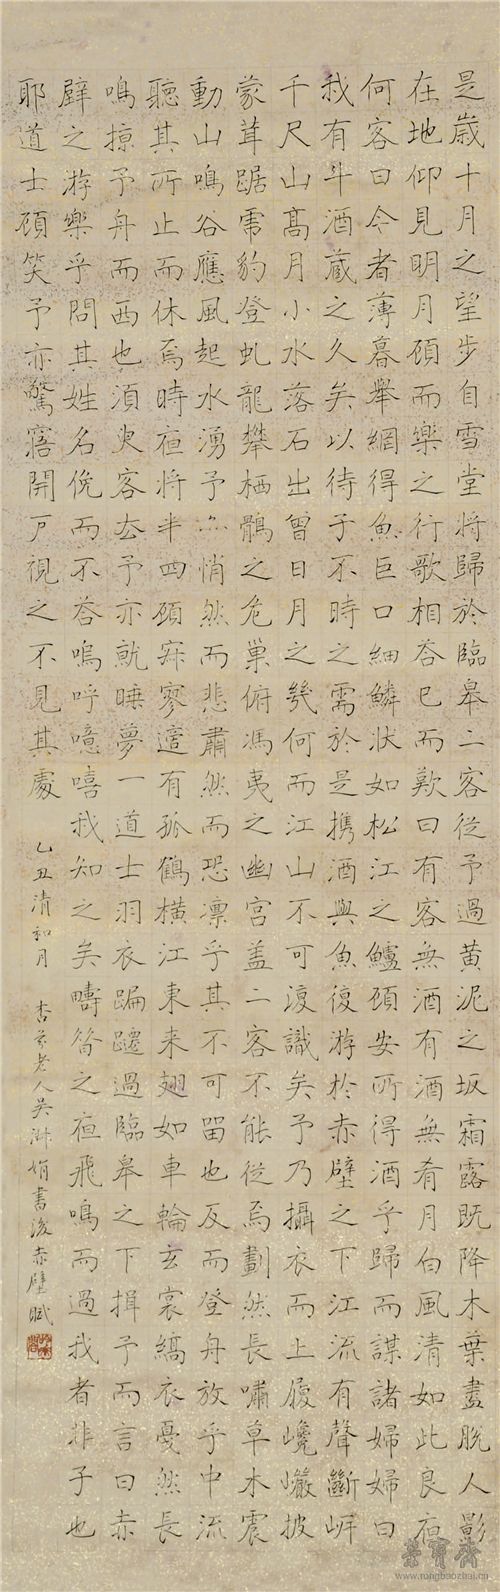 是歲十月之望步自雪堂將歸於臨皋二客從予過黃泥之坂霜露既降木葉盡脫人影
在地仰見明月顧而樂之行歌相答已而歎曰有客無酒有酒無肴月白風清如此良夜
何客曰今者薄暮舉網得魚巨口細鱗狀如松江之鱸顧安所得酒乎歸而謀諸婦婦曰
我有斗酒藏之久矣以待子不時之需於是攜酒與魚復游於赤壁之下江流有聲斷岸
千尺山高月小水落石出曾日月之幾何而江山不可復識矣予乃攝衣而上履巉巖披
蒙茸踞虎豹登虬龍攀栖鶻之危巢俯馮夷之幽宮蓋二客不能從焉劃然長嘯草木震
動山鳴谷應風起水湧予亦悄然而悲肅然而恐凜乎其不可留也反而登舟放乎中流
聽其所止而休焉時夜將半四顧寂寥適有孤鶴橫江東來翅如車輪玄裳縞衣戛然長
鳴掠予舟而西也須臾客去予亦就睡夢一道士羽衣蹁躚過臨皋之下揖予而言曰赤
壁之游樂乎問其姓名俛而不答嗚呼噫嘻我知之矣疇昔之夜飛鳴而過我者非子也
耶道士顧笑予亦驚寤開戶視之不見其處
乙丑清和月 杏芬老人吳淑娟書後赤壁賦
榮寶齋
www.rongbaozhai.cn